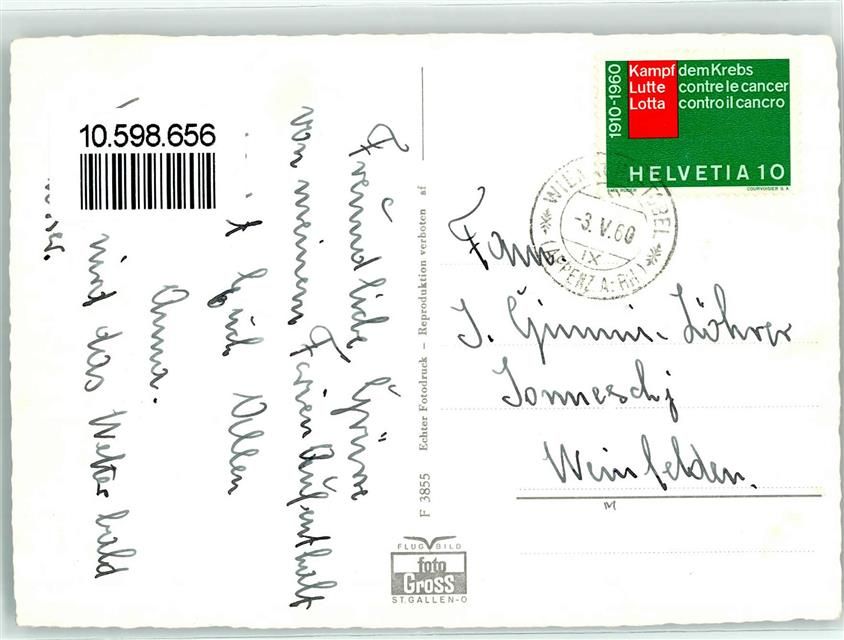 10.598.656
Freundliche Grüsse
von meinem Ferien Aufenthalt
Euch Allen
Anna.
wird das Wetter bald
F 3855 Echter Fotodruck – Reproduktion verboten af
FLUG BILD
foto
Gross
ST. GALLEN-O
1910-1960
Kampf dem Krebs
Lutte contre le cancer
Lotta contro il cancro
HELVETIA 10
COURVOISIER S.A.
-3.V.60
IX
(APPENZ A: RH.)
Fam.
J. Lührer
Weinfelden.